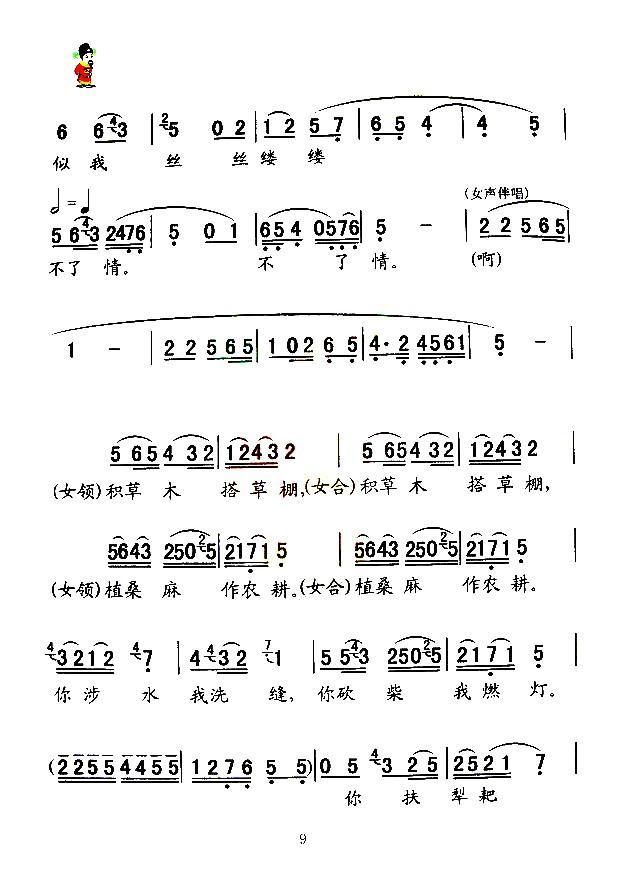 6 643 | 25 0 2 | 1 2 5 7 | 6 5 4 | 4 5 |
似我 丝 丝缕 缕
(女声伴唱)
5 643 2476 | 5 0 1 | 654 0576 | 5 - | 2 2 565 |
不了 情。 不 了 情。 (啊)
1 - | 2 2 565 | 102 6 5 | 4·2 4561 | 5 - |
5 654 32 | 12432 | 5 654 32 | 12432 |
(女领)积草 木 搭草棚,(女合)积草 木 搭草棚,
5643 25025 | 2171 5 | 5643 25025 | 2171 5 |
(女领)植桑 麻 作农 耕。(女合)植桑 麻 作农 耕。
43212 47 | 4432 71 | 5 543 25025 | 2171 5 |
你 涉 水 我洗 缝, 你砍 柴 我 燃 灯。
(2255 4455 | 1276 5 5) | 0 5 43 25 | 2521 7 |
你 扶 犁 耙
9